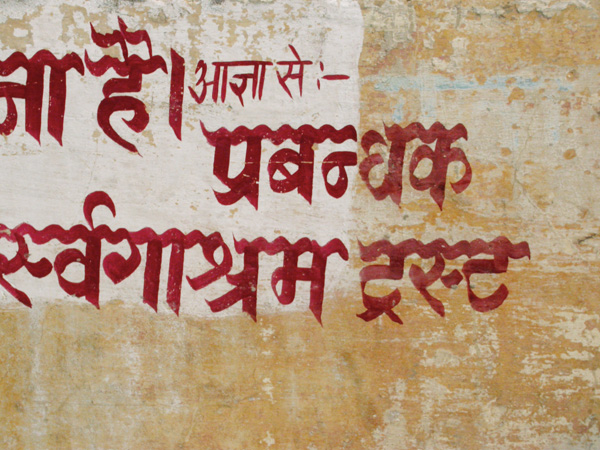 ना है। आज्ञा से :-
प्रबन्धक
स्वर्गाश्रम ट्रस्ट